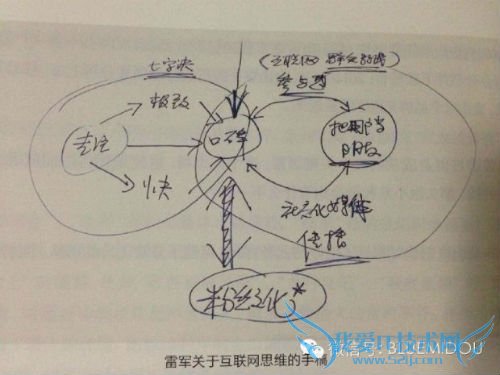 七字决
(互联网 群众路线)
参与感
极致
专注
口碑
把用户当
朋友
快
社会化媒体
传播
粉丝文化*
我爱IT技术网
微信号: BLUEMIDOU
雷军关于互联网思维的手稿